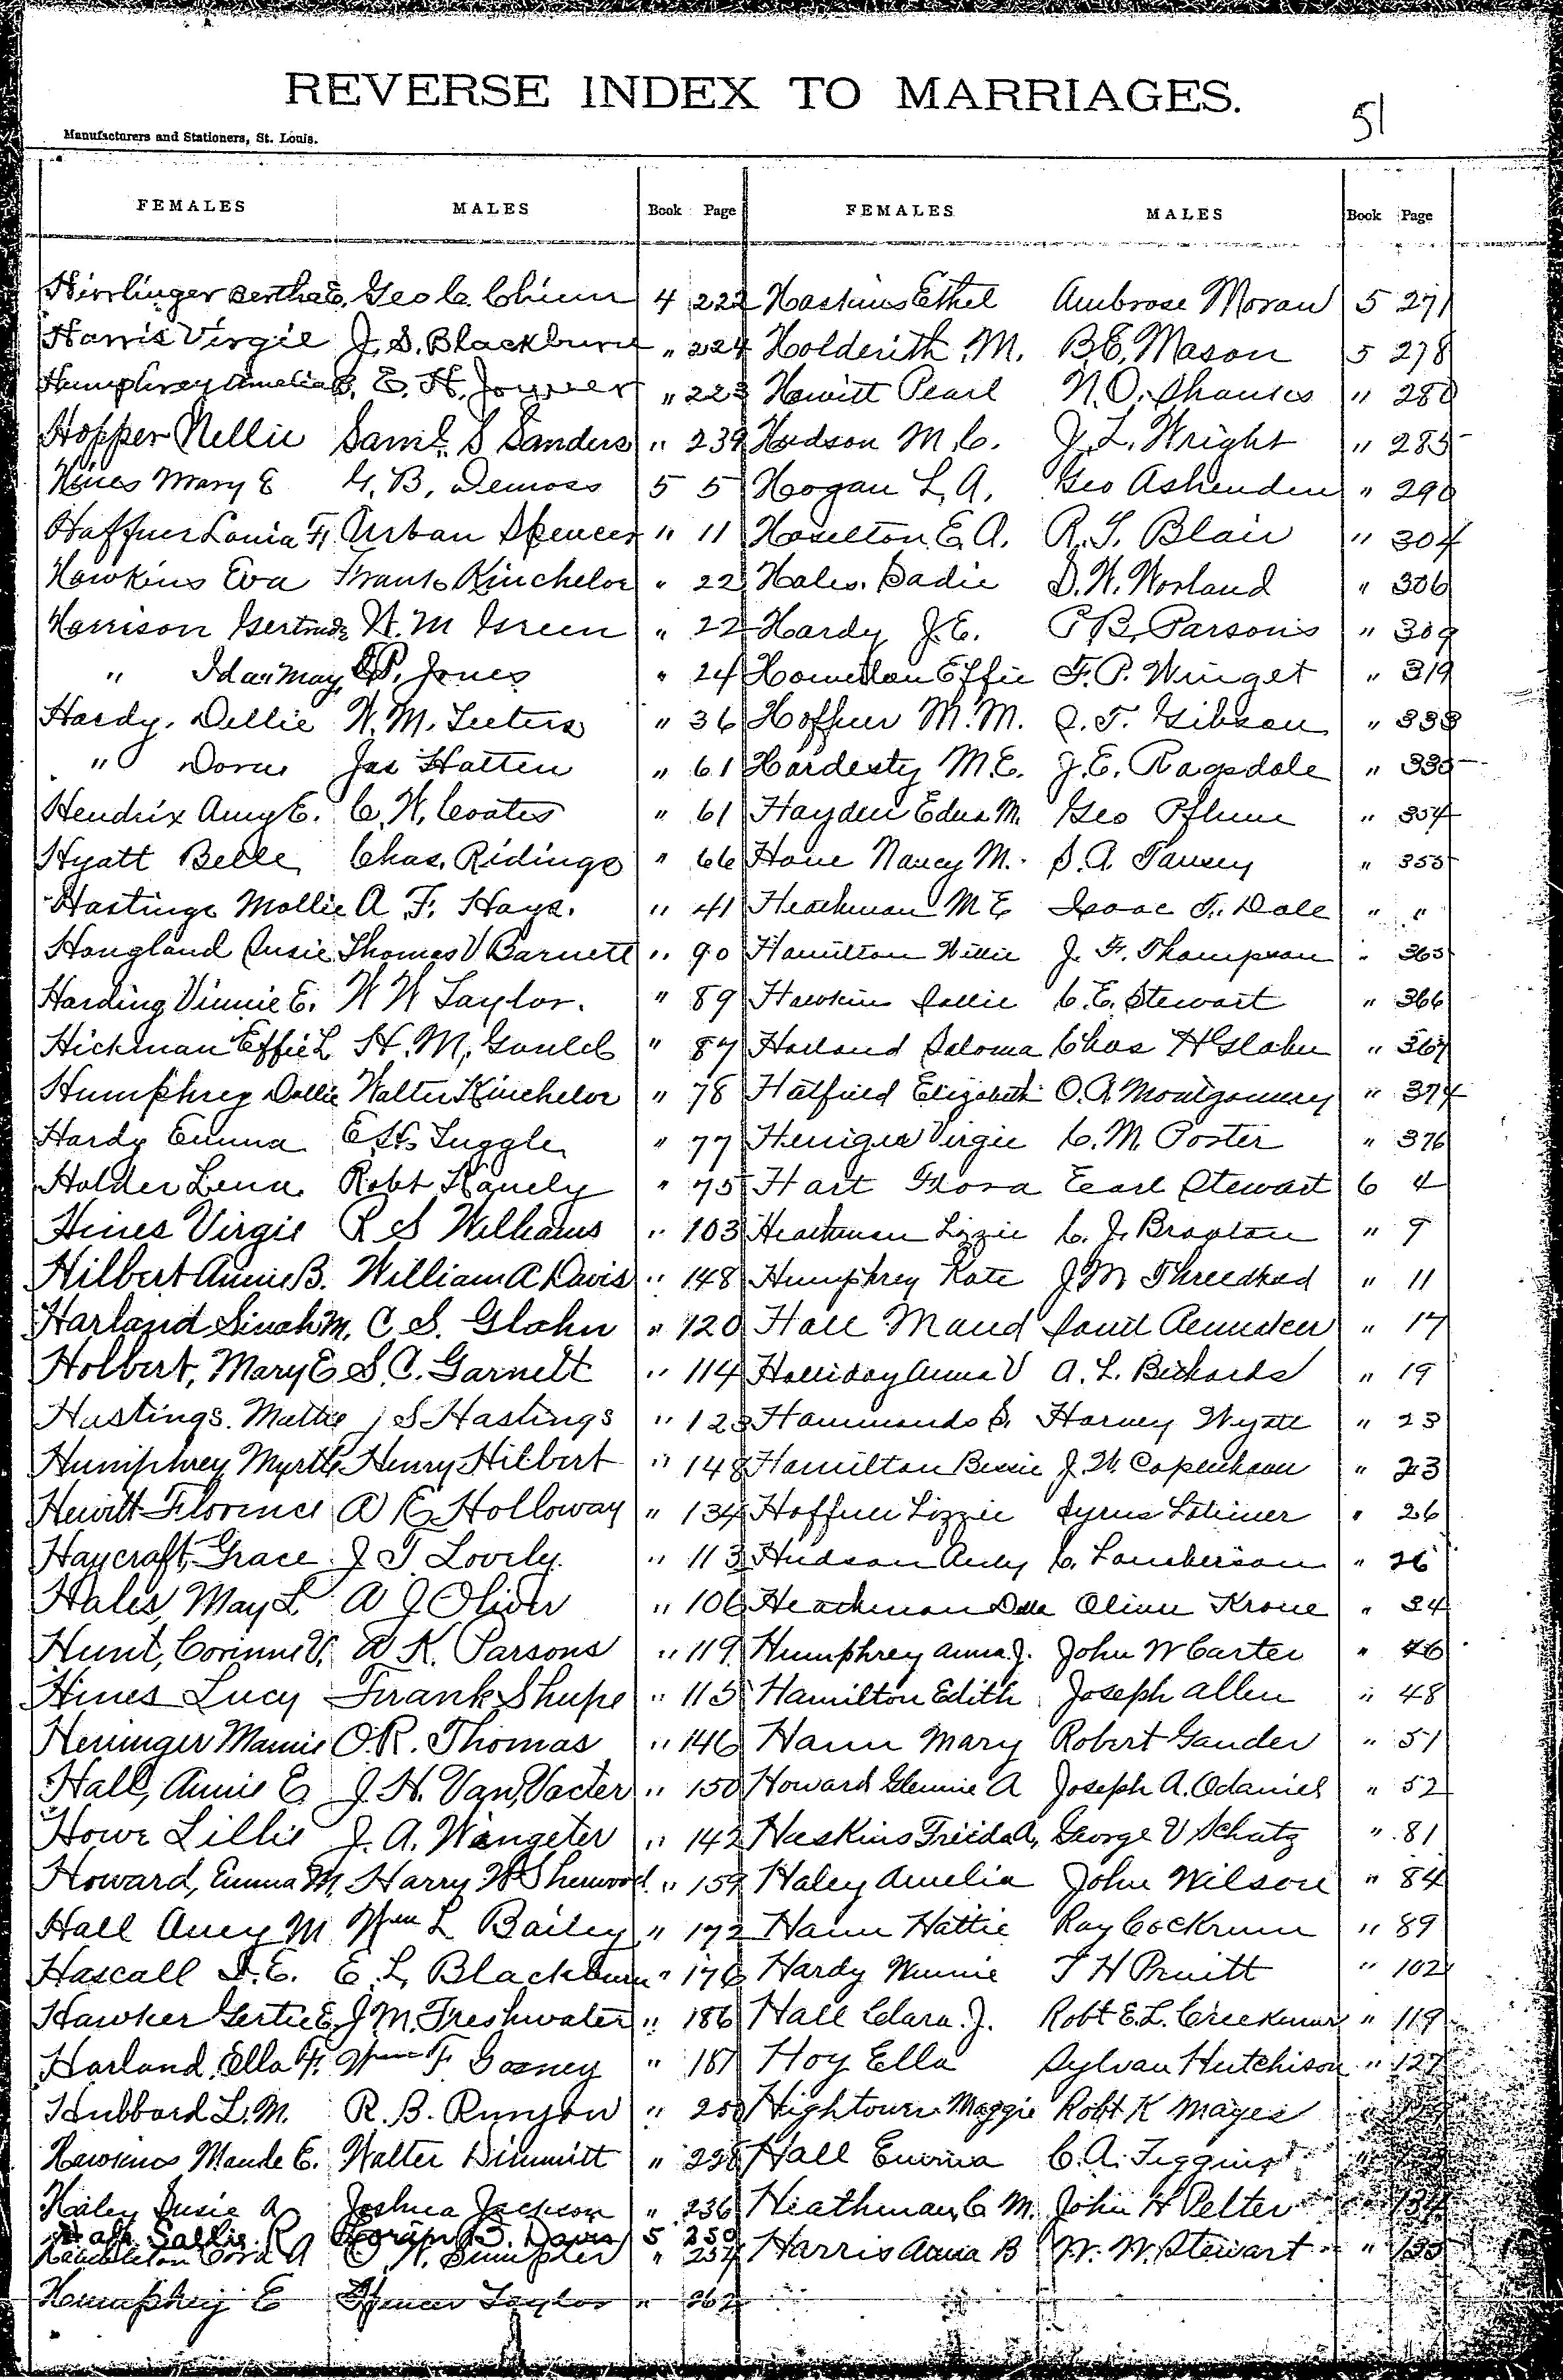 REVERSE INDEX TO MARRIAGES.
51
Manufacturers and Stationers, St. Louis.
FEMALES MALES Book Page FEMALES MALES Book Page
Hirrlinger Bertha E. Geo C. Chinn 4 222 Haskins Ethel Ambrose Moran 5 271
Harris Virgie J. S. Blackburn " 224 Holderith M. B. E. Mason 5 278
Humphrey Amelia B. E. H. Joyner " 223 Hewitt Pearl N. O. " 280
Hopper Nellie Saml. S Sanders " 239 Hudson M. C. J. L. Wright " 285
Hines Mary E G. B. Demoss 5 5 Hogan L. A. Geo Ashenden " 290
Haffner Louia F. Urban Spencer " 11 Haselton E. A. R. T. Blair " 304
Hawkins Eva Frank Kincheloe " 22 Hales Sadie D. W. Worland " 306
Harrison Gertrude W. M Green " 22 Hardy J. E. P. B. Parsons " 309
" Ida May P. Jones " 24 Effie F. P. Winget " 319
Hardy, Dellie W. M. Teeters " 36 Haffner M. M. J. T. Gibson " 333
" Dora Jas Hatten " 61 Hardesty M. E. J. E. Ragsdale " 335
Hendrix Amy E. C. W. Coates " 61 Hayden Edna M. Geo Pflum " 354
Hyatt Belle Chas. Ridings " 66 Nancy M. S. A. Tansey " 355
Hastings Mollie A. F. Hays. " 41 Heathman M E Isaac T. Dale " "
Hongland Susie Thomas V Barnett " 90 Hamilton Willie J. F. Thompson " 365
Harding Vinnie E. W W Taylor. " 89 Hawkins Sallie C. E. Stewart " 366
Hickman Effie L H. M. Gould " 87 Harland Saloma Chas H Glahn " 367
Humphrey Dollie Walter Kincheloe " 78 Hatfield Elizabeth O. A Montgomery " 374
Hardy Emma E. H. Tuggle " 77 Heniger Virgie C. M. Poster " 376
Holder Lena Robt Kanely " 75 Hart Flora Earl Stewart 6 4
Hines Virgie R S Williams " 103 Heathman Lizzie C. J. Braxton " 9
Hilbert Annie B. William A Davis " 148 Humphrey Kate J. M. Threlkeld " 11
Harland Sinah M. C. S. Glahn " 120 Hall Maud Saml " 17
Holbert, Mary E S. C. Garnett " 114 Holliday Anna V A. L. Richards " 19
Hastings. Mattie J S Hastings " 123 Hammonds S. Harvey Wyatt " 23
Humphrey Myrtle Henry Hilbert " 148 Hamilton Bessie J. W. Copenhaver " 23
Hewitt Florence A E Holloway " 134 Haffner Lizzie Syrus Latimer " 26
Haycraft, Grace J T Lovely. " 113 Hudson C. Lamberson " 26
Hales, May L A J Oliver " 106 Heathman Della Oliver Krone " 34
Hunt, Corinne V. A K. Parsons " 119 Humphrey Anna J. John W Carter " 46
Hines Lucy Frank Shupe " 115 Hamilton Edith Joseph Allen " 48
Heninger Mamie O. R. Thomas " 146 Hann Mary Robert Gander " 51
Hall, Annie E J. H. Van Vacter " 150 Howard Glennie A Joseph A. Odaniel " 52
Howe Lillie J. A. Wingeter " 142 Haskins Frieda A, George V Schatz " 81
Howard, Emma M. Harry W Sherwood " 159 Haley Amelia John Wilson " 84
Hall Amey M Wm L Bailey " 172 Hann Hattie Ray Cockrum " 89
Hascall D. E. E. L. Blackburn " 176 Hardy Minnie T H Pruitt " 102
Hawker Gertie E. J. M. Freshwater " 186 Hall Clara. J. Robt E. L. Creekmur " 119
Harland Ella F. Wm F. Gosney " 187 Hoy Ella Sylvan Hutchison " 127
Hubbard L. M. R. B. Runyon " 200 Hightower Maggie Robt K Mayes
Hawkins Maude E. Walter Dimmitt " 228 Hall Emma C. A. Figgins
Haley Susie A Joshua Jackson " 236 Heathman C M. John H Pelter 134
Hall Sallie R. B. Davis 5 250
Hambleton Cora A C. H. Sumpter " 257 Harris Anna B W. W. Stewart " 135
Humphrey E Spencer Taylor " 262